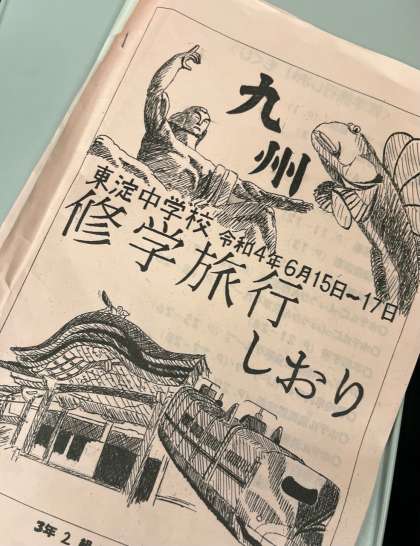 九州
東淀中学校
令和4年6月15日~17日
修学旅行
しおり
3年2組